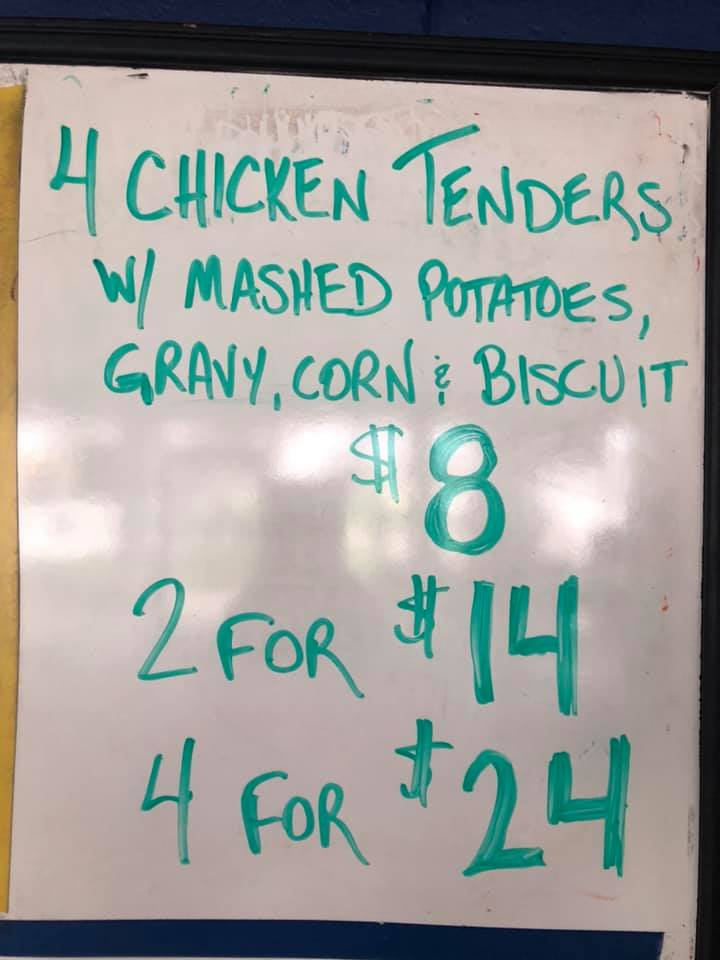 4 CHICKEN TENDERS
W/ MASHED POTATOES,
GRAVY, CORN & BISCUIT
$8
2 FOR $14
4 FOR $24